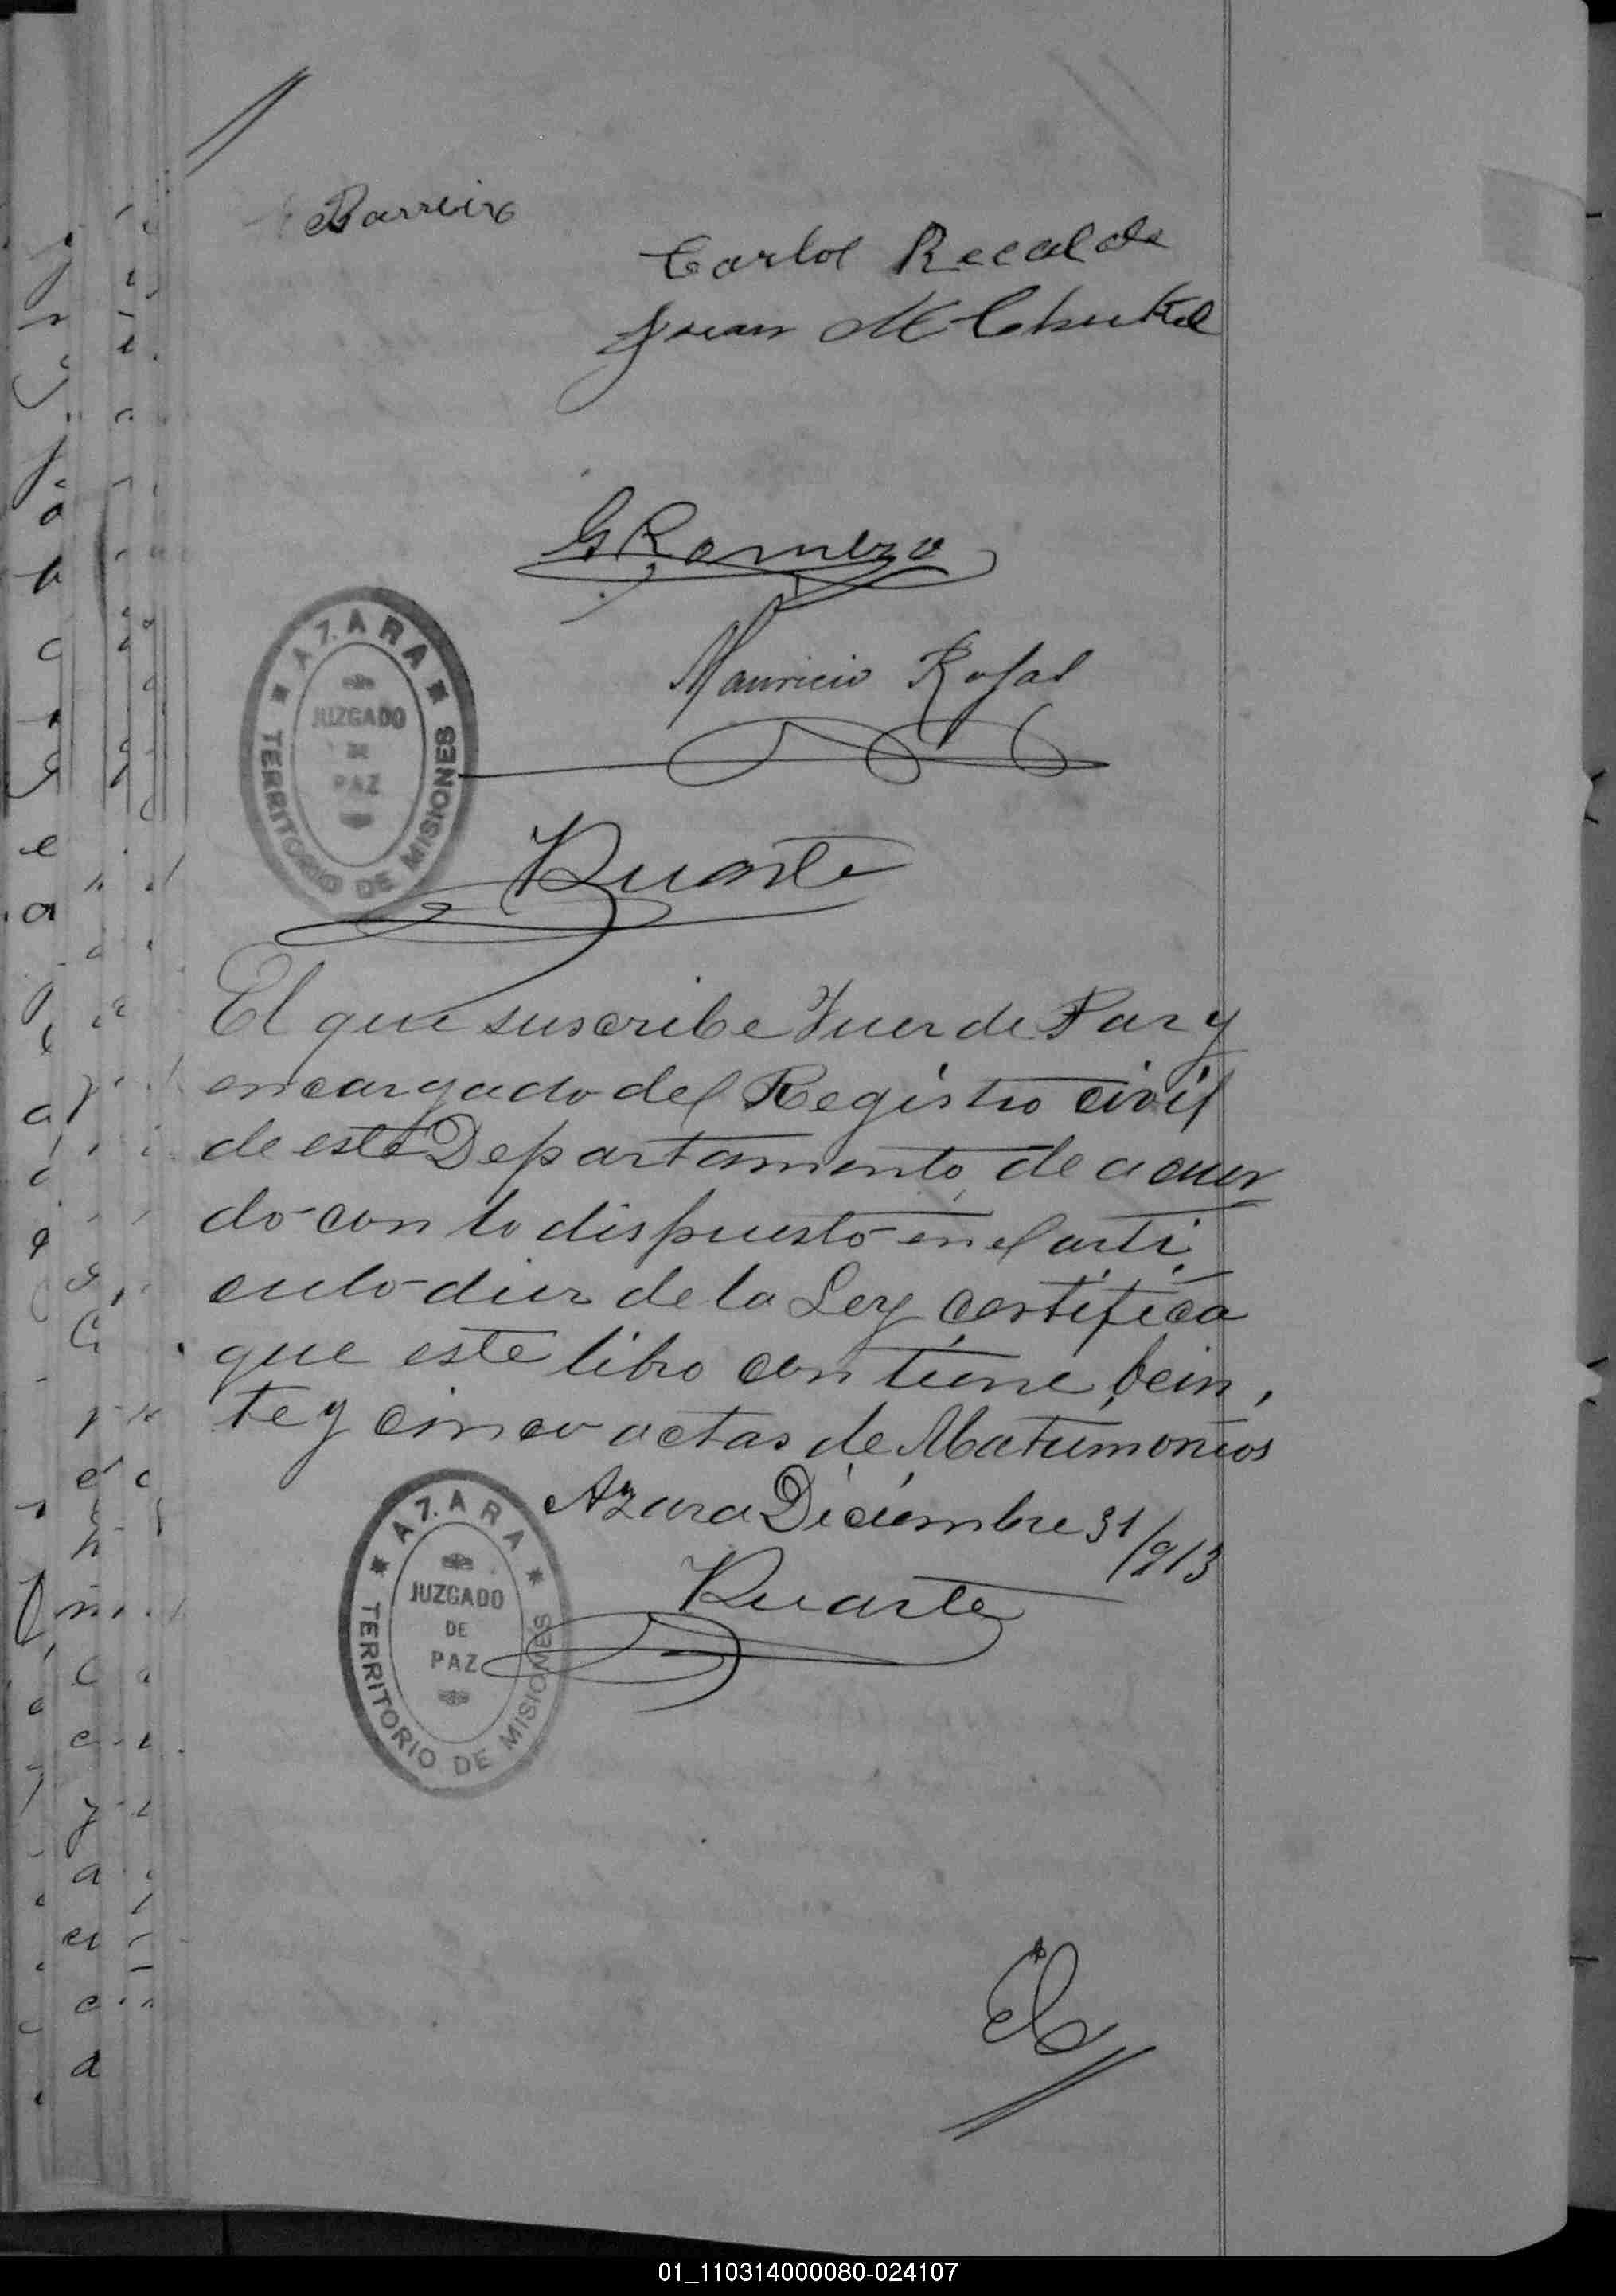 Barreiro
Carlos Recalde
Juan M Chuked
G Romero
Mauricio Rojas
AZARA
JUZGADO
DE
PAZ
TERRITORIO DE MISIONES
Duarte
El que suscribe Juez de Paz y
encargado del Registro civil
de este Departamento de acuer
do con lo dispuesto en el arti
culo diez de la Ley certifica
que este libro contiene bein,
te y cinco actas de Matrimonios
Azara Diciembre 31/913
Duarte
AZARA
JUZGADO
DE
PAZ
TERRITORIO DE MISIONES
01_110314000080-024107